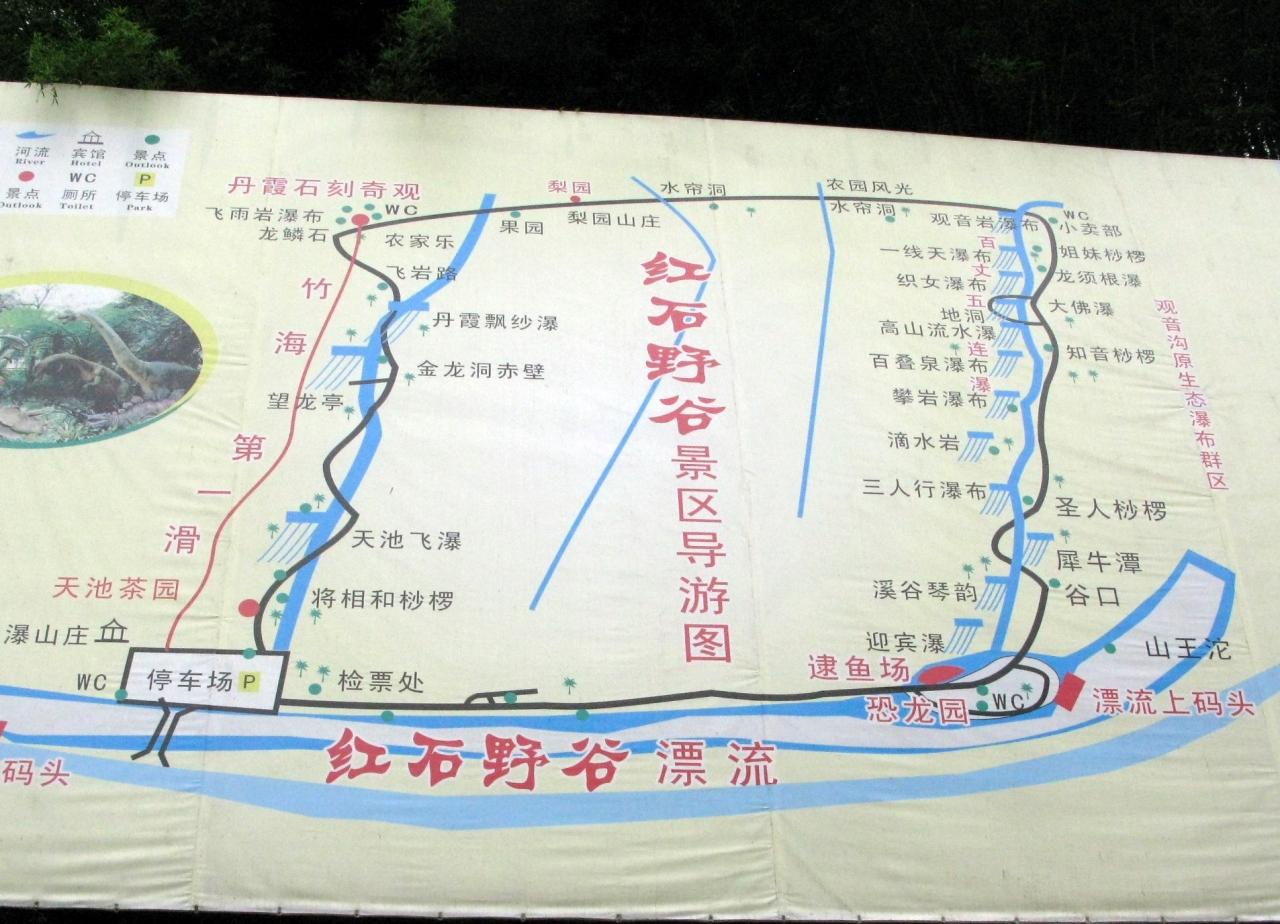 河流 宾馆 景点
River Hotel Outlook
WC P
景点 厕所 停车场
Outlook Toilet Park
丹霞石刻奇观
飞雨岩瀑布
WC
龙鳞石
农家乐
果园
梨园
梨园山庄
水帘洞
农园风光
水帘洞
观音岩瀑布
WC
小卖部
飞岩路
丹霞飘纱瀑
金龙洞赤壁
望龙亭
竹海第一滑
天池飞瀑
天池茶园
将相和桫椤
瀑山庄
WC
停车场 P
检票处
红石野谷景区导游图
百丈五连瀑
一线天瀑布
织女瀑布
地洞
高山流水瀑
百叠泉瀑布
攀岩瀑布
滴水岩
三人行瀑布
溪谷琴韵
迎宾瀑
姐妹桫椤
龙须根瀑
大佛瀑
知音桫椤
圣人桫椤
犀牛潭
谷口
观音沟原生态瀑布群区
山王沱
逮鱼场
恐龙园
WC
漂流上码头
红石野谷漂流
码头